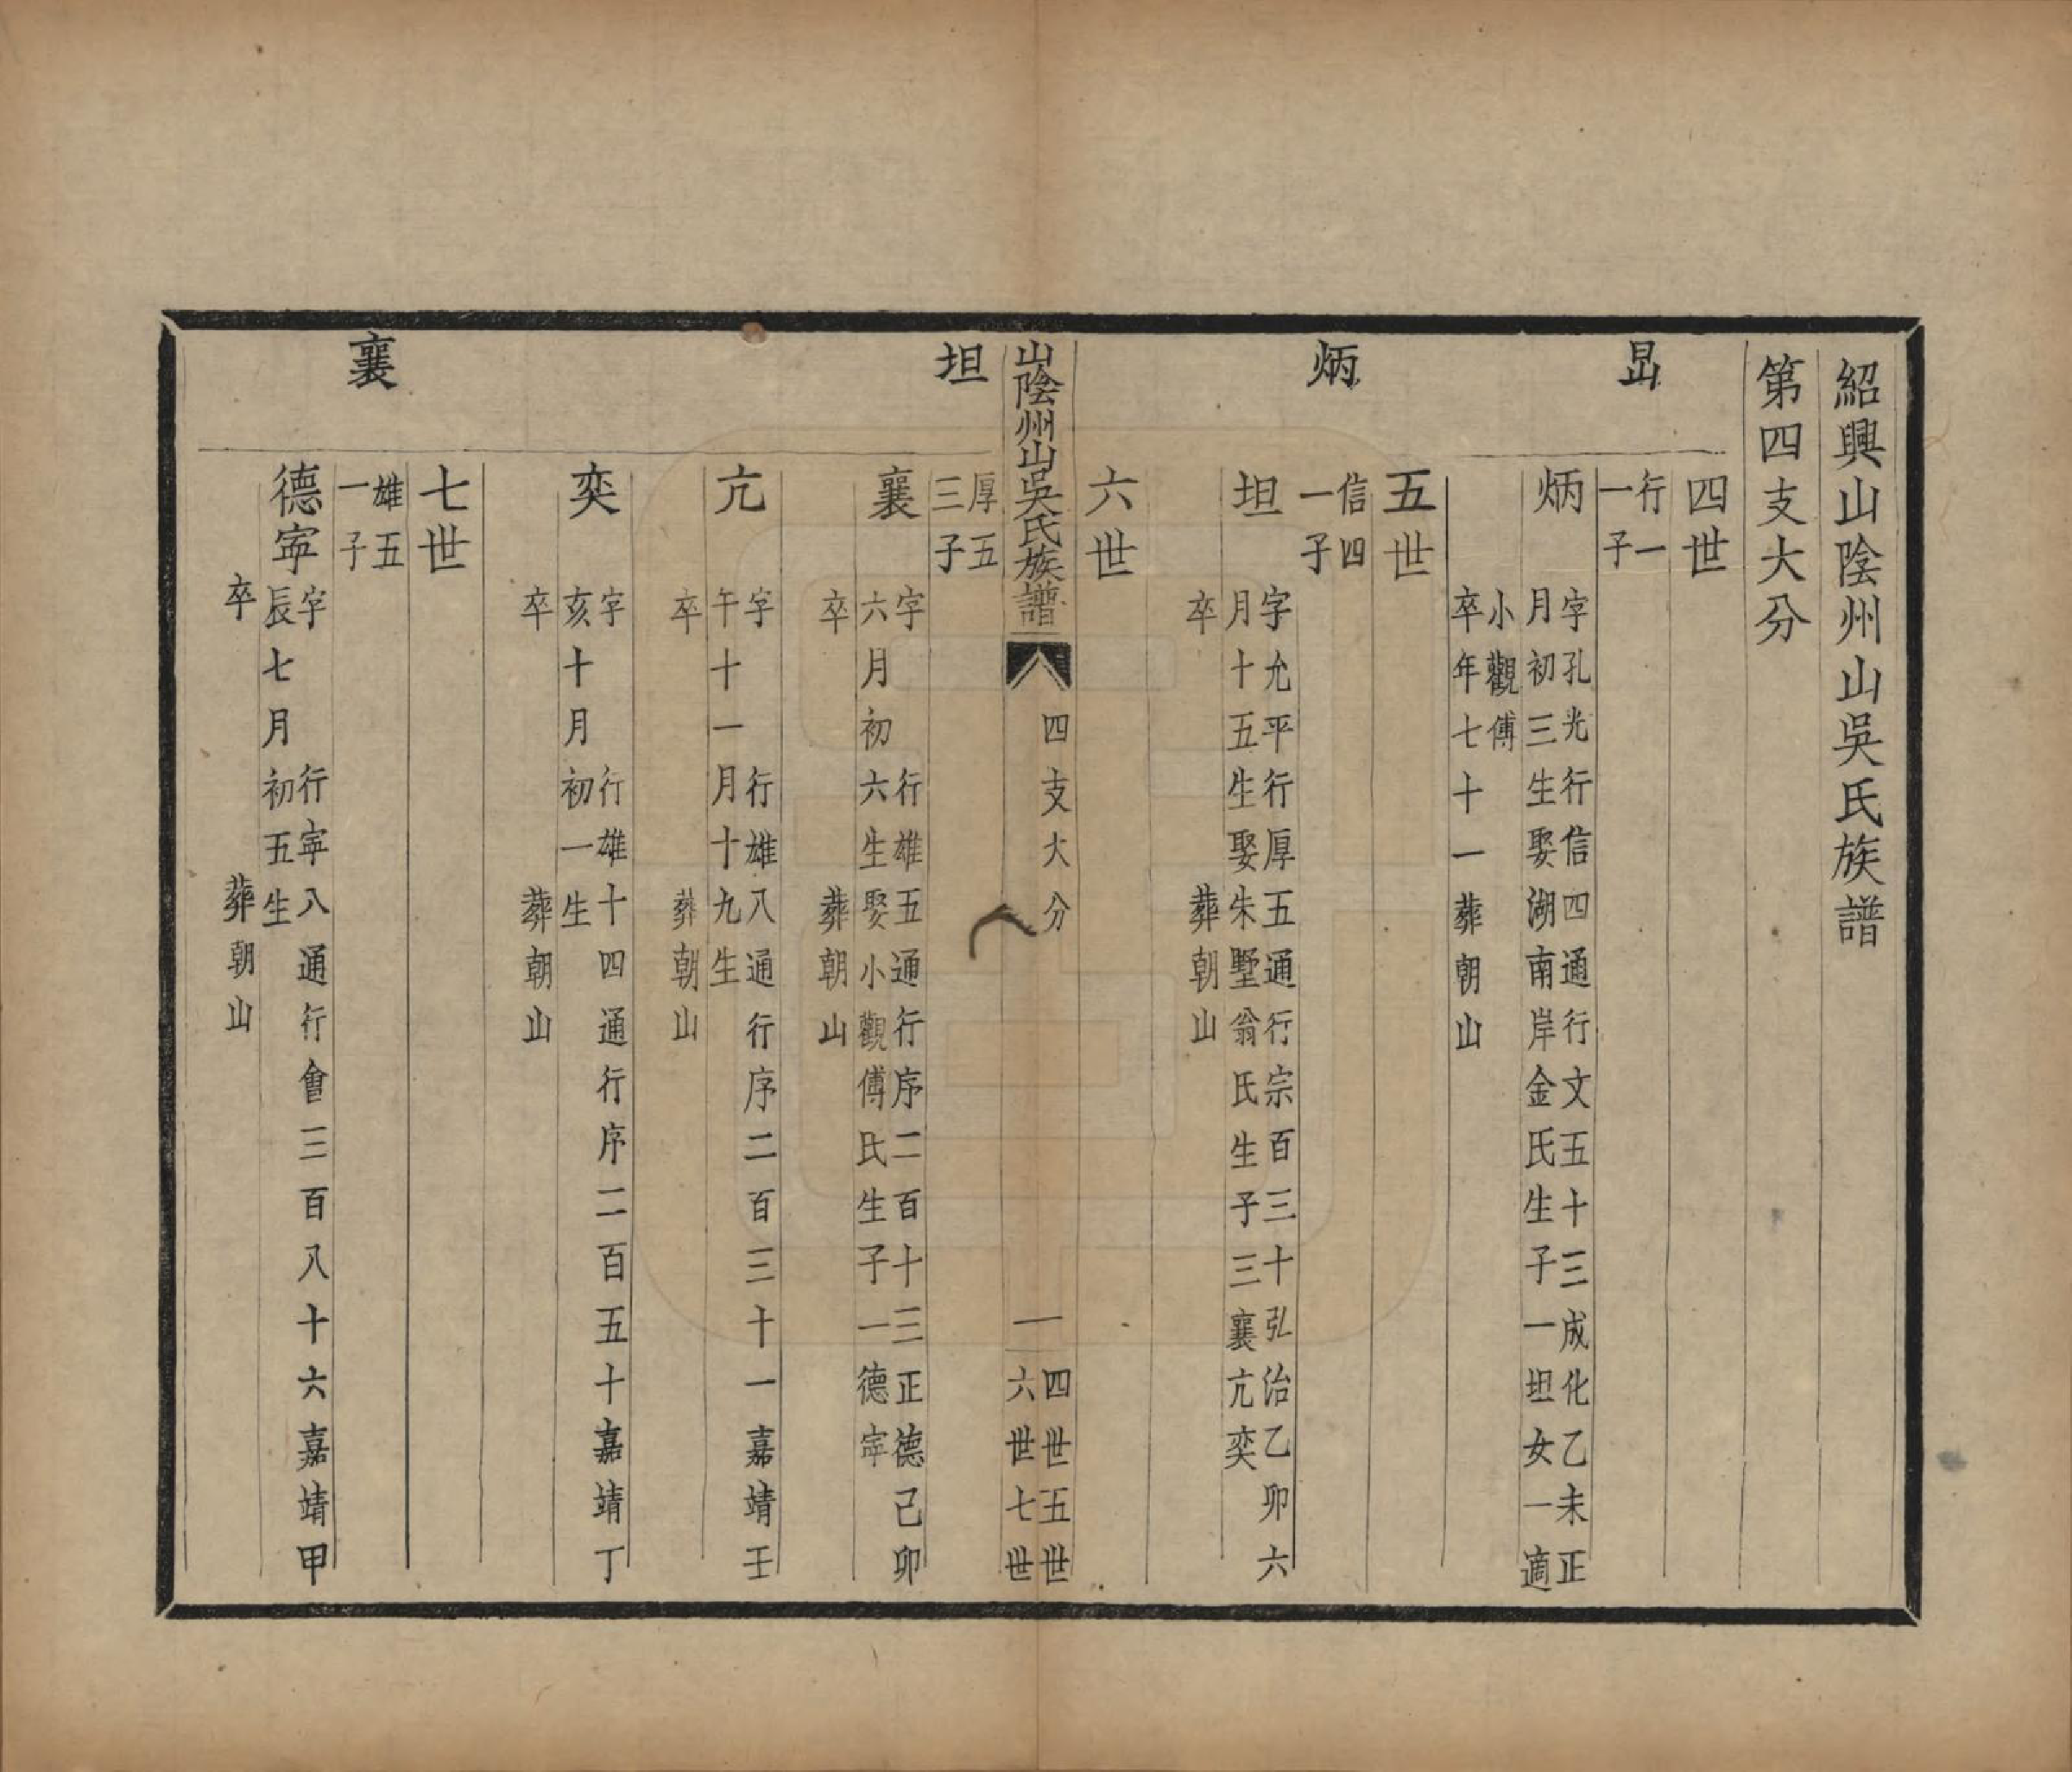 紹興山陰州山吳氏族譜
第四支大分
四世
行一
一子
炳
字孔光行信四通行文五十三成化乙未正
月初三生娶湖南岸金氏生子一坦女一適
小觀傅
卒年七十一葬朝山
五世
炳
信四
一子
坦
字允平行厚五通行宗百三十弘治乙卯六
月十五生娶朱墅翁氏生子三襄亢奕
卒 葬朝山
六世
山陰州山吳氏族譜
四支大分
一
四世五世
六世七世
坦
厚五
三子
襄
字 行雄五通行序二百十三正德己卯
六月初六生娶小觀傅氏生子一德寧
卒 葬朝山
亢
字 行雄八通行序二百三十一嘉靖壬
午十一月十九生
卒 葬朝山
奕
字 行雄十四通行序二百五十嘉靖丁
亥十月初一生
卒 葬朝山
七世
襄
雄五
一子
德寧
字 行寧八通行會三百八十六嘉靖甲
辰七月初五生
卒 葬朝山